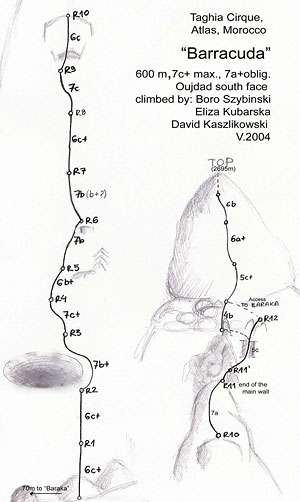 Taghia Cirque,
Atlas, Morocco
“Barracuda”
600 m,7c+ max., 7a+oblig.
Oujdad south face
climbed by: Boro Szybinski
Eliza Kubarska
David Kaszlikowski
V.2004
R10
6c
R9
7c
R8
6c+
R7
7b (b+?)
R6
7b
R5
6b+
R4
7c+
R3
7b+
R2
6c+
R1
6c+
70m to "Baraka"
TOP
(2695m)
6b
6a+
5c+
Access
TO BARAKA
4b
R12
5c
R11'
R11
end of the
main wall
7a
R10